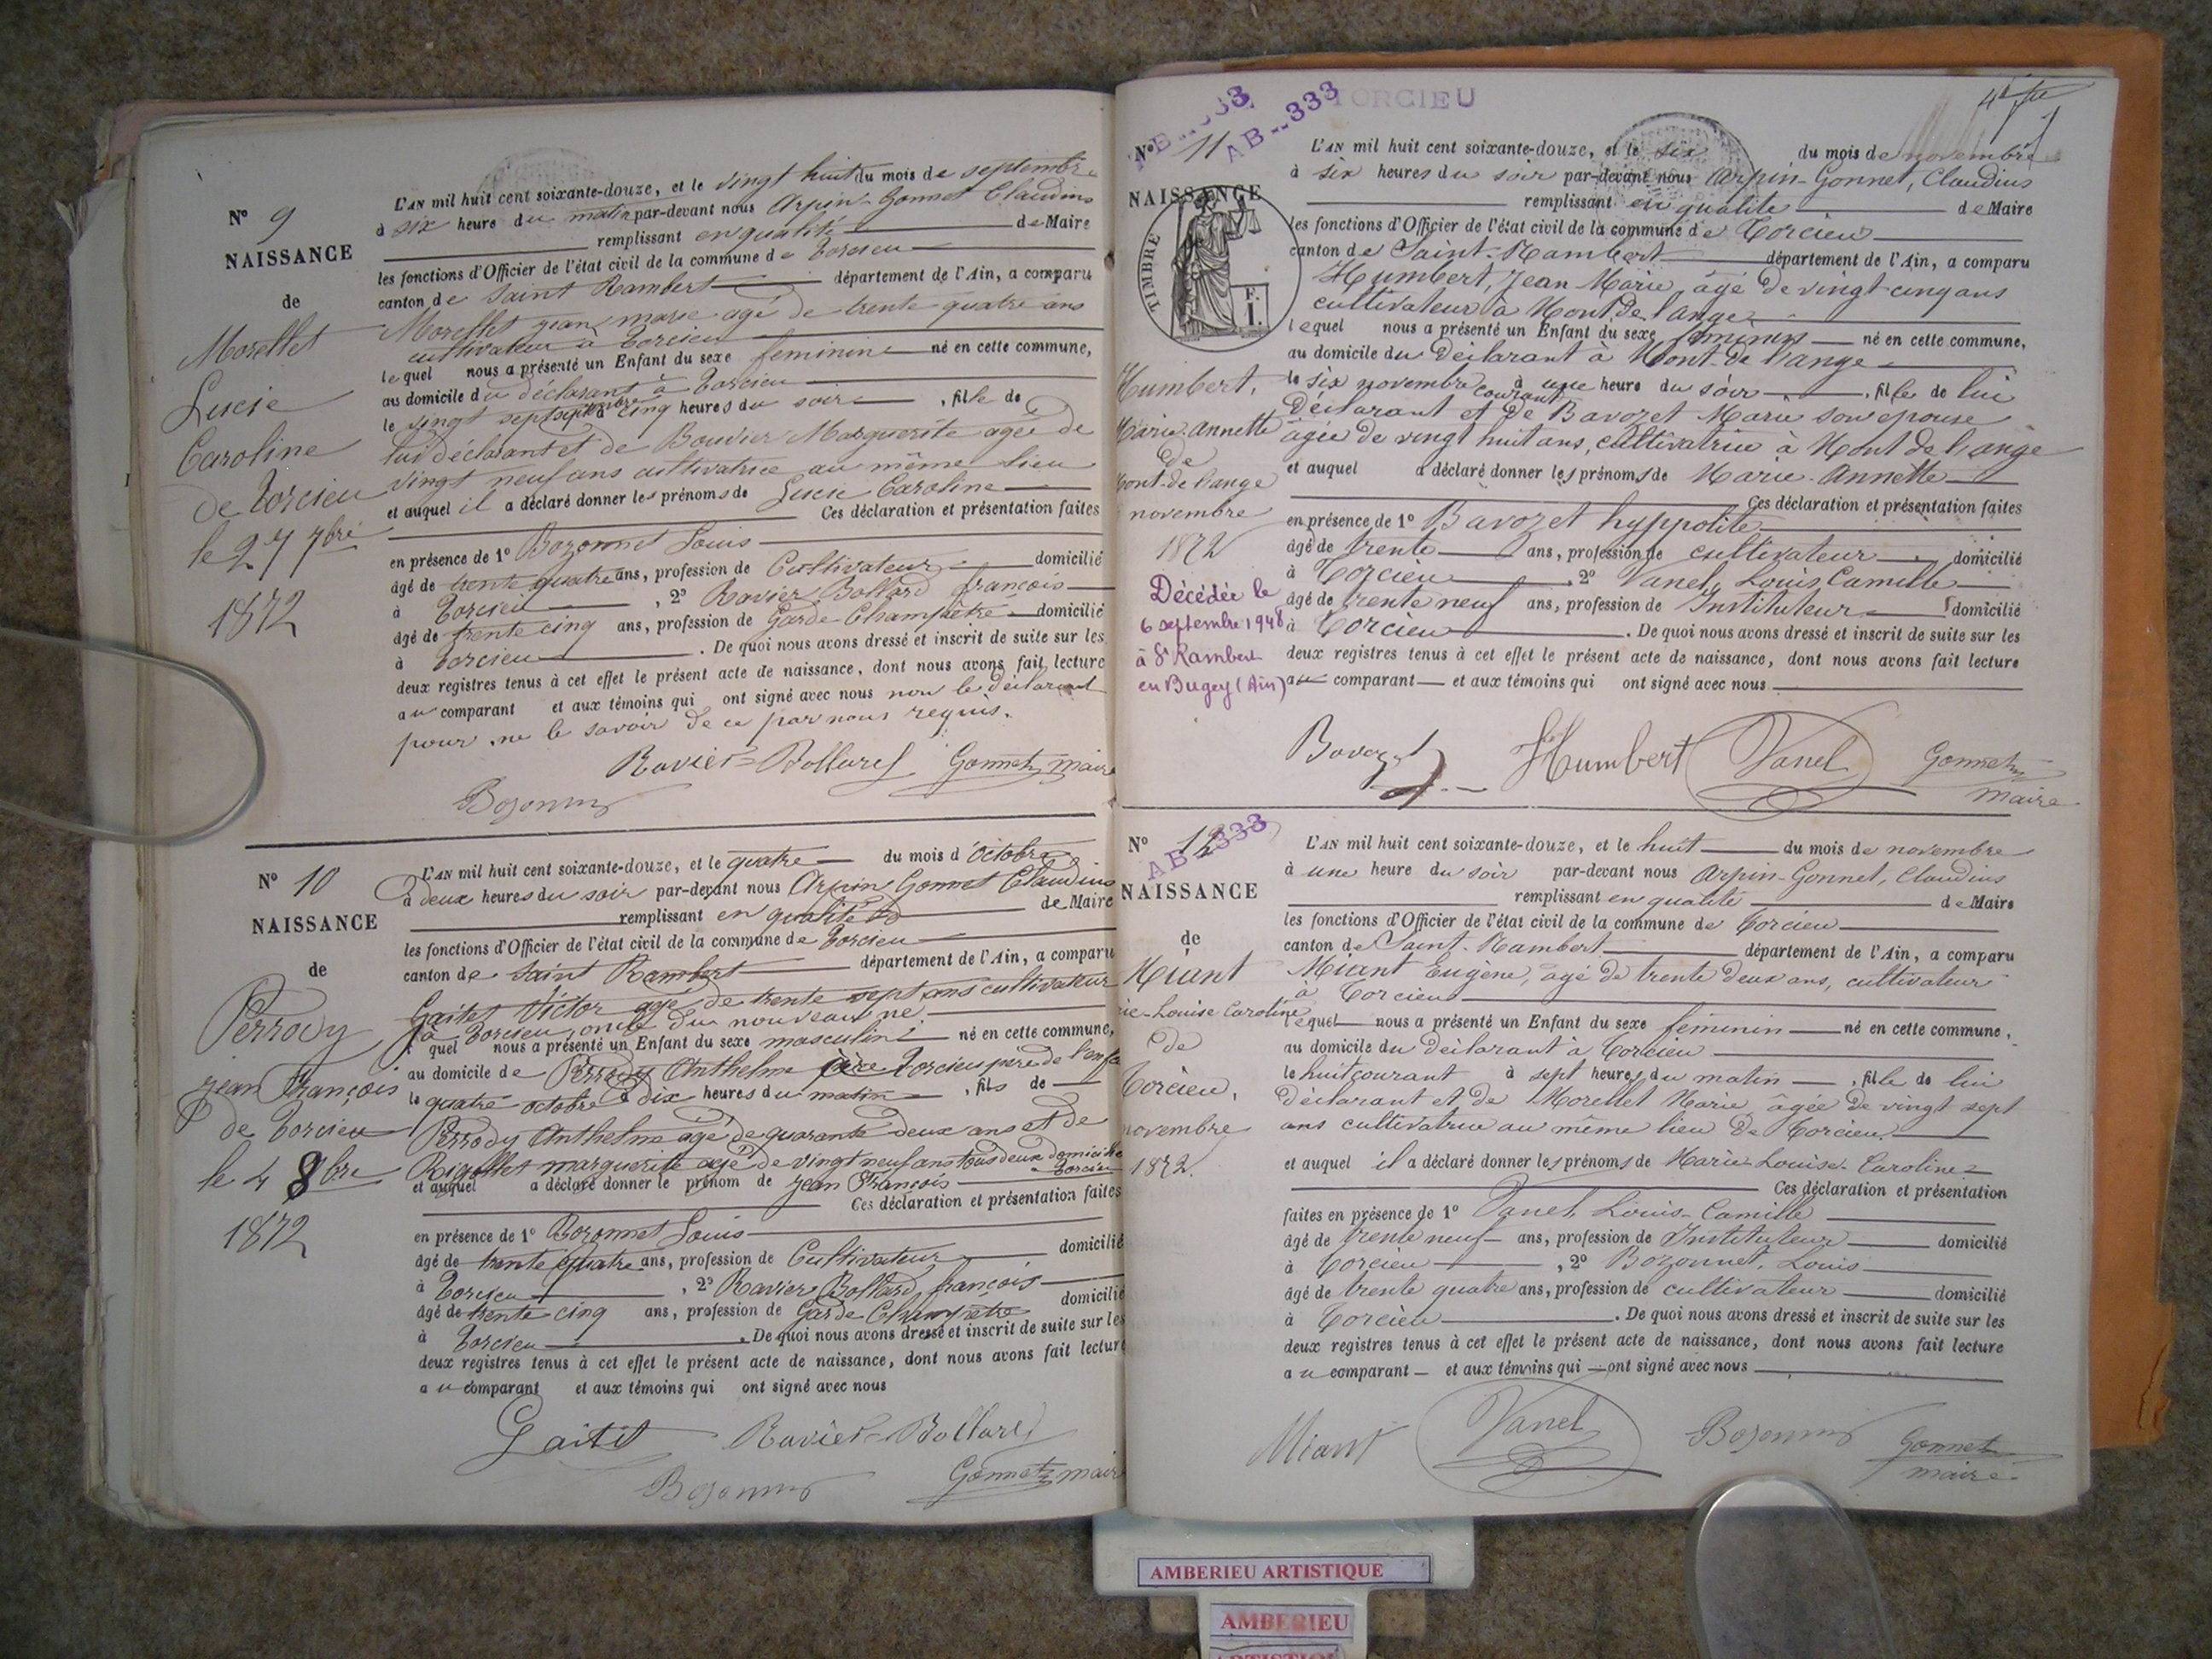 N° 9
NAISSANCE
de
Morellet
Lucie
Caroline
de Torcieu
le 27 7bre
1872
L'AN mil huit cent soixante-douze, et le vingt huit du mois de septembre
à six heure du matin par-devant nous Arpin-Gonnet Claudius
remplissant en qualité de Maire
les fonctions d'Officier de l'état civil de la commune de Torcieu
canton de Saint Rambert département de l'Ain, a comparu
Morellet jean marie agé de trente quatre ans
cultivateur à Torcieu
lequel nous a présenté un Enfant du sexe feminine né en cette commune,
au domicile du déclarant à Torcieu
le vingt sept septembre à cinq heures du soir, fille de
lui déclarant et de Bouvier Marguerite agée de
vingt neuf ans cultivatrice au même lieu
et auquel il a déclaré donner les prénoms de Lucie Caroline
Ces déclaration et présentation faites
en présence de 1° Bozonnet Louis
âgé de trente quatre ans, profession de Cultivateur domicilié
à Torcieu, 2° Ravier Bollard françois
âgé de trente cinq ans, profession de Garde Champêtre domicilié
à Torcieu. De quoi nous avons dressé et inscrit de suite sur les
deux registres tenus à cet effet le présent acte de naissance, dont nous avons fait lecture
au comparant et aux témoins qui ont signé avec nous non le déclarant
pour ne le savoir de ce par nous requis.
Ravier-Bollard Gonnet maire
Bozonnet
N° 10
NAISSANCE
de
Perrody
jean François
de Torcieu
le 4 8bre
1872
L'AN mil huit cent soixante-douze, et le quatre du mois d'octobre
à deux heures du soir par-devant nous Arpin Gonnet Claudius
remplissant en qualité de Maire
les fonctions d'Officier de l'état civil de la commune de Torcieu
canton de Saint Rambert département de l'Ain, a comparu
Gaitet Victor agé de trente sept ans cultivateur
à Torcieu, oncle du nouveau né
quel nous a présenté un Enfant du sexe masculin né en cette commune,
au domicile de Perrody Anthelme Torcieu père de l'enfa
le quatre octobre à dix heures du matin, fils de
Perrody Anthelme agé de quarante deux ans et de
Rigollet marguerite agé de vingt neuf ans tous deux domicilié
à Torcieu
et auquel a déclaré donner le prénom de jean François
Ces déclaration et présentation faites
en présence de 1° Bozonnet Louis
âgé de trente quatre ans, profession de Cultivateur domicilié
à Torcieu, 2° Ravier Bollard françois
âgé de trente cinq ans, profession de Garde Champêtre domicilié
à Torcieu. De quoi nous avons dressé et inscrit de suite sur les
deux registres tenus à cet effet le présent acte de naissance, dont nous avons fait lecture
au comparant et aux témoins qui ont signé avec nous
Gaitet Ravier-Bollard
Bozonnet Gonnet maire
AB...333 TORCIEU
N° 11
NAISSANCE
TIMBRE
F.
1.
Humbert,
Marie-Annette
de
Mont-de-l'ange
novembre
1872
Décédée le
6 septembre 1948
à St Rambert
en Bugey (Ain)
L'AN mil huit cent soixante-douze, et le six du mois de novembre
à six heures du soir par-devant nous Arpin-Gonnet, Claudius
remplissant en qualité de Maire
les fonctions d'Officier de l'état civil de la commune de Torcieu
canton de Saint-Rambert département de l'Ain, a comparu
Humbert, Jean Marie, âgé de vingt-cinq ans
cultivateur à Mont de l'ange
lequel nous a présenté un Enfant du sexe féminin né en cette commune,
au domicile du déclarant à Mont-de l'ange
le six novembre courant à une heure du soir, fille de lui
déclarant et de Bavozet Marie son epouse
âgée de vingt huit ans, cultivatrice à Mont de l'ange
et auquel a déclaré donner les prénoms de Marie-Annette
Ces déclaration et présentation faites
en présence de 1° Bavozet hyppolite
âgé de trente ans, profession de cultivateur domicilié
à Torcieu, 2° Vanel, Louis Camille
âgé de trente neuf ans, profession de Instituteur domicilié
à Torcieu. De quoi nous avons dressé et inscrit de suite sur les
deux registres tenus à cet effet le présent acte de naissance, dont nous avons fait lecture
au comparant et aux témoins qui ont signé avec nous
Bavozet Humbert Vanel Gonnet
maire
N° 12
AB 333
NAISSANCE
de
Miant
ie-Louise Caroline
de
Torcieu,
novembre
1872.
L'AN mil huit cent soixante-douze, et le huit du mois de novembre
à une heure du soir par-devant nous Arpin-Gonnet, Claudius
remplissant en qualité de Maire
les fonctions d'Officier de l'état civil de la commune de Torcieu
canton de Saint-Rambert département de l'Ain, a comparu
Miant Eugène, âgé de trente deux ans, cultivateur
à Torcieu
lequel nous a présenté un Enfant du sexe féminin né en cette commune,
au domicile du déclarant à Torcieu
le huit courant à sept heures du matin, fille de lui
déclarant et de Morellet Marie, âgée de vingt sept
ans cultivatrice au même lieu de Torcieu.
et auquel il a déclaré donner les prénoms de Marie-Louise-Caroline
Ces déclaration et présentation
faites en présence de 1° Vanel, Louis-Camille
âgé de trente neuf ans, profession de Instituteur domicilié
à Torcieu, 2° Bozonnet, Louis
âgé de trente quatre ans, profession de cultivateur domicilié
à Torcieu. De quoi nous avons dressé et inscrit de suite sur les
deux registres tenus à cet effet le présent acte de naissance, dont nous avons fait lecture
au comparant et aux témoins qui ont signé avec nous
Miant Vanel Bozonnet Gonnet
maire
AMBERIEU ARTISTIQUE
AMBERIEU
ARTISTIQUE